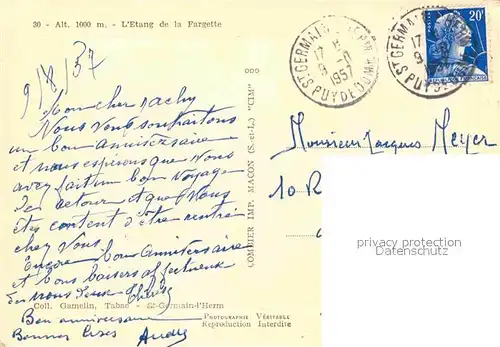 30 - Alt. 1000 m. - L'Etang de la Fargette
9/8/57
Mon cher Jacky
Nous vous souhaitons
un bon anniversaire
et nous espérons que vous
avez fait un bon voyage
de retour et que vous
êtes content d'être rentré
chez vous.
Encore bon Anniversaire
et bons baisers affectueux
En nous deux Thérèse
Coll. Gamelin, Tabac - St-Germain-l'Herm
Bon anniversaire
Bonnes bises Andrée
PHOTOGRAPHIE VÉRITABLE
Reproduction Interdite
COMBIER IMP. MACON (S.-et-L.) "CIM"
ST GERMAIN L'HERM
17 H
9 - 8
1957
PUY DE DOME
ST GERMAIN
17
9
PUY DE
POSTES
20F
Monsieur Jacques Meyer
10 R
privacy protection
Datenschutz